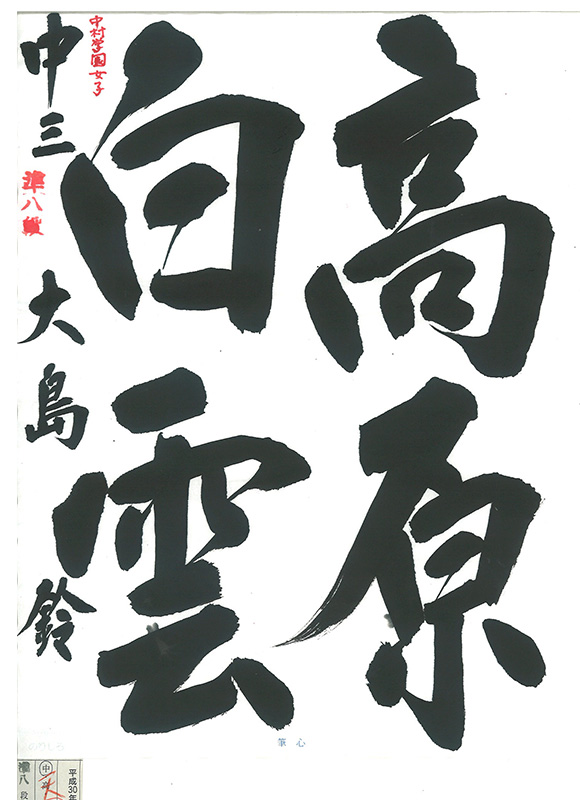 高原
白雲
中村学園女子
中三
準八段
大島鈴
心筆
のりしろ
平成30年
中
準八段